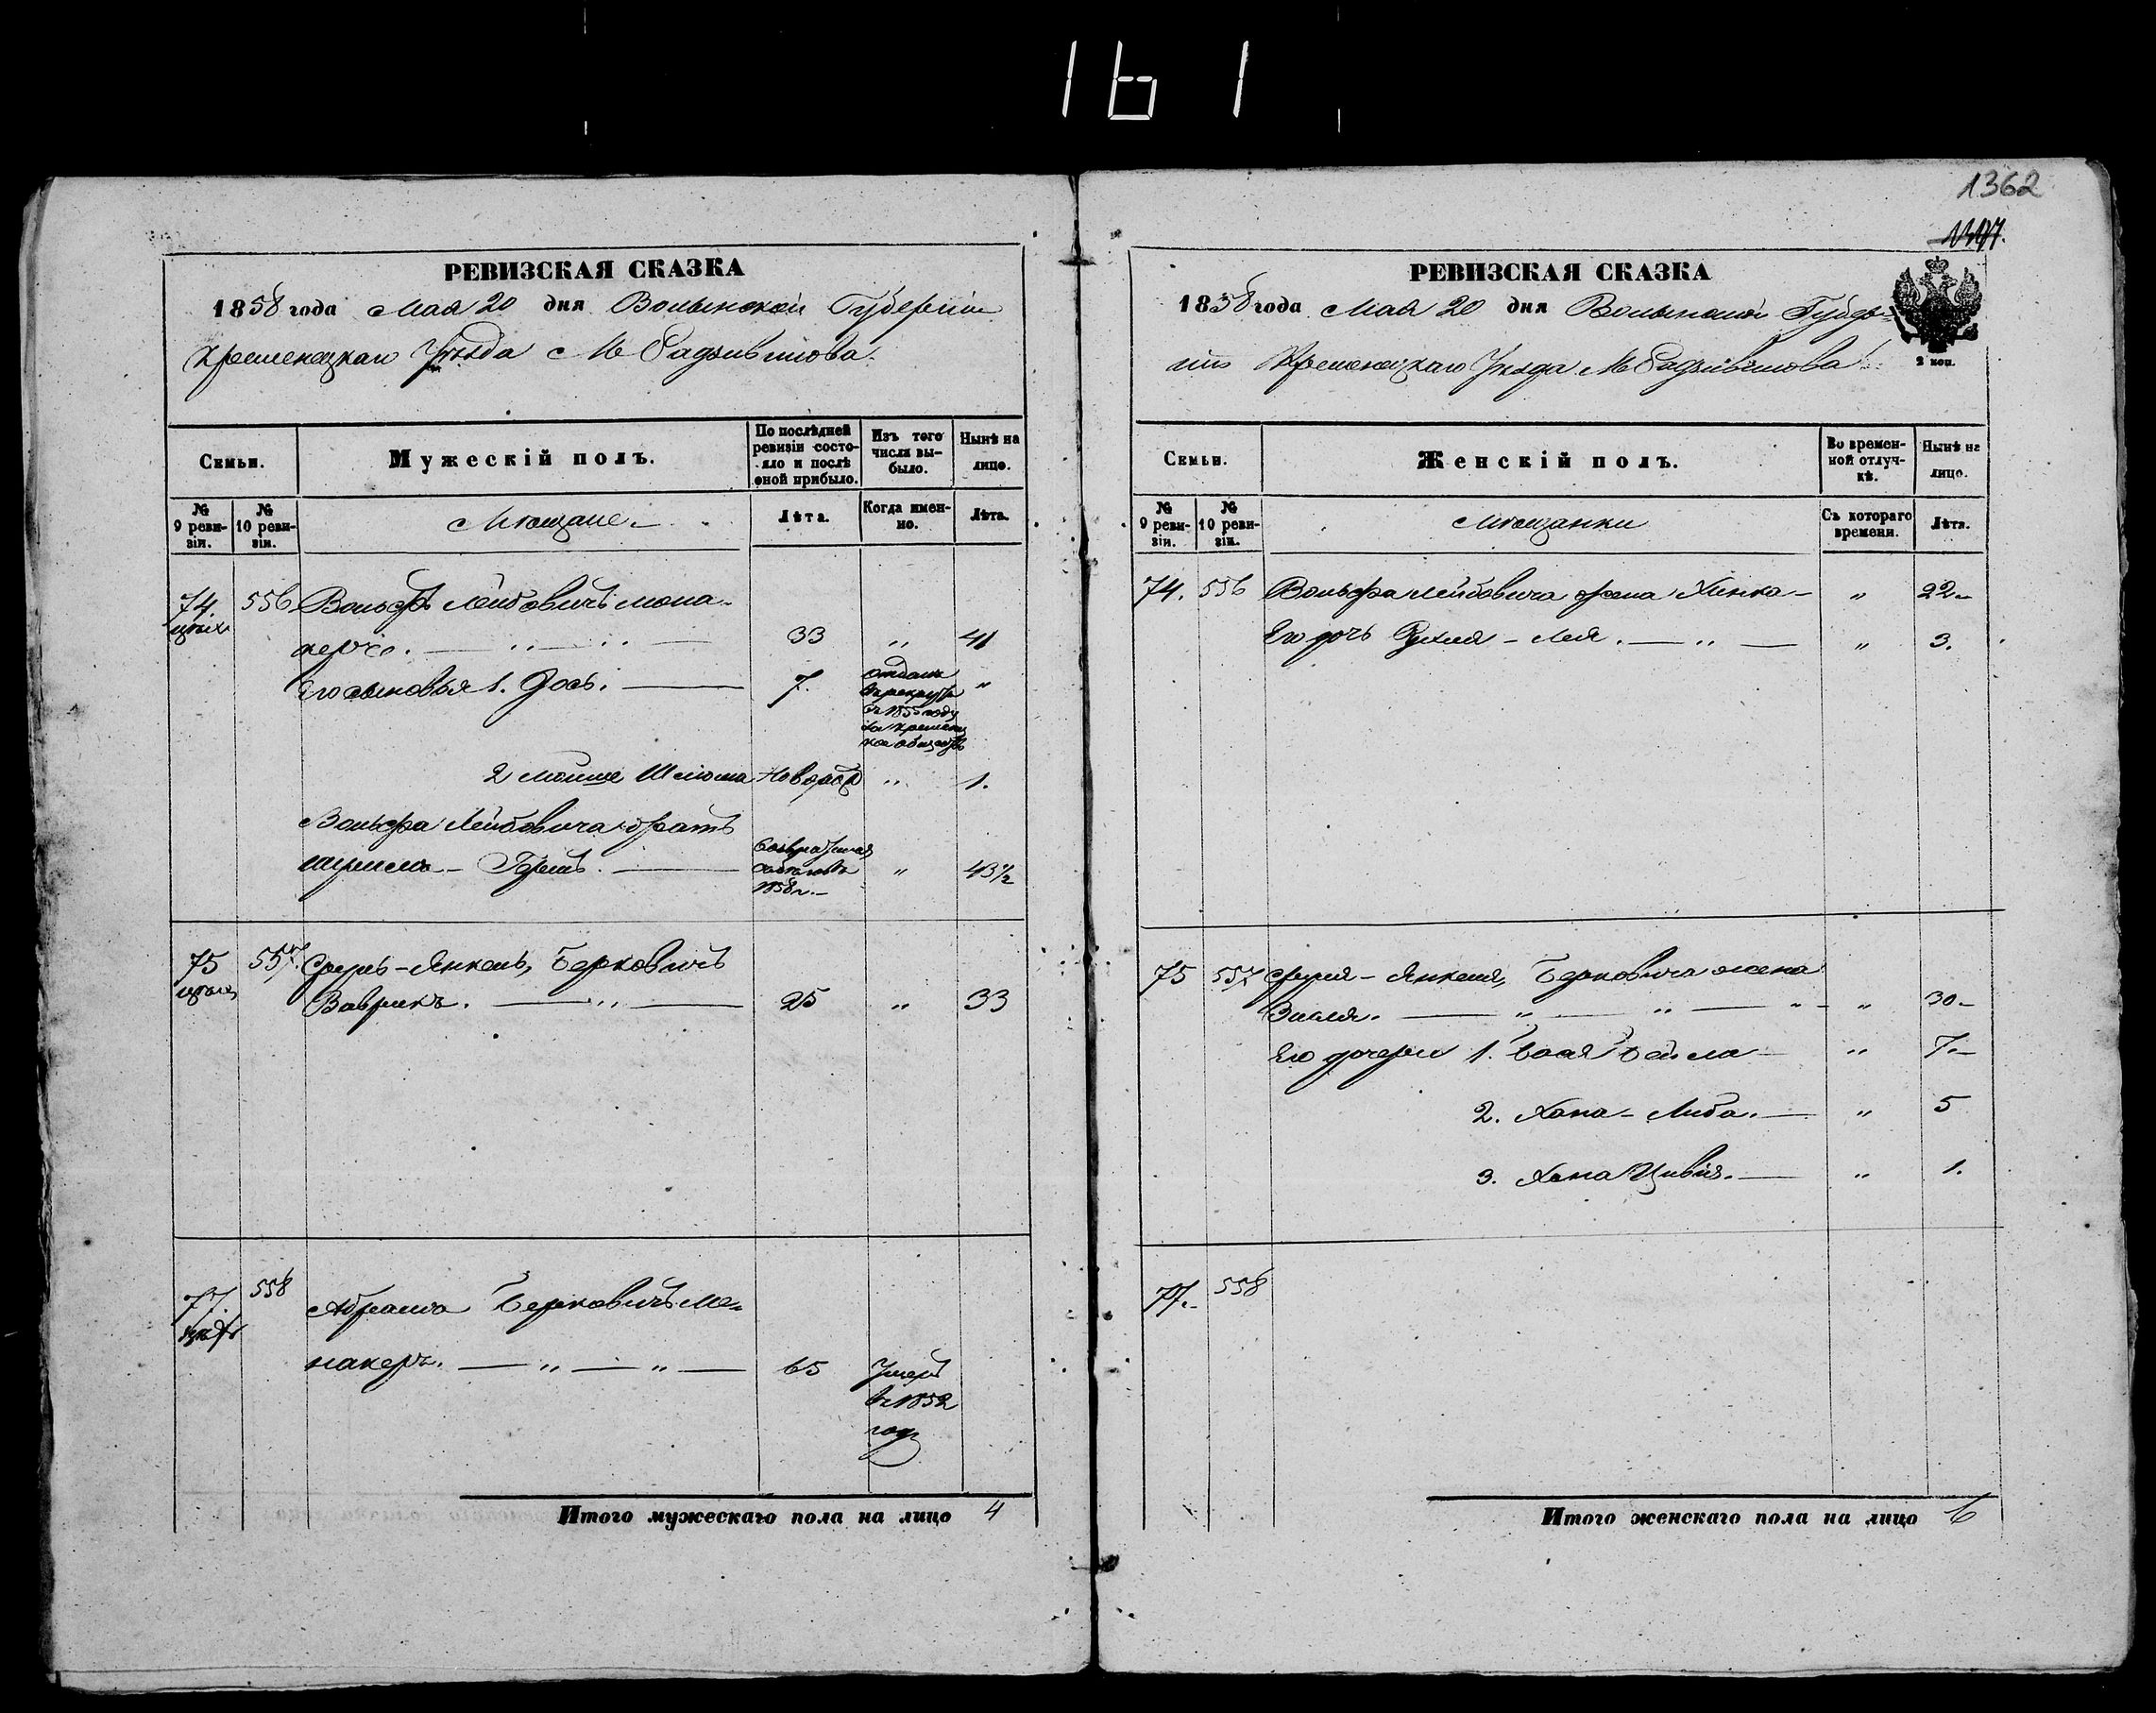 161
1362
РЕВИЗСКАЯ СКАЗКА
1858 года Мая 20 дня Волынской Губерніи
Кременецкаго Уѣзда М Радзивилова.
Семьи.
Мужескій полъ.
По послѣдней ревизіи состояло и послѣ оной прибыло.
Изъ того числа выбыло.
Нынѣ на лицо.
№ 9 ревизіи.
№ 10 ревизіи.
Мѣщане.
Лѣта.
Когда именно.
Лѣта.
74. 556 Вольфъ Лейбовичъ Мона-
керъ. 33 " 41
Его сыновья 1. Іось. 7. отданъ в рекруты въ 1855 году "
2 Мошше Шлиома Новорож " 1.
Вольфа Лейбовича братъ
Шмуль - Гершъ. 1858 г. " 43½
75 557 Сруль-Янкель, Берковичъ
Ваврикъ. " 25 " 33
77. 558 Абрамъ Берковичъ Мо-
накеръ. " " 65 Умеръ
въ 1852
году
Итого мужескаго пола на лицо 4
РЕВИЗСКАЯ СКАЗКА
1858 года Мая 20 дня Волынской Губер-
ніи Кременецкаго Уѣзда М Радзивилова
2 коп.
Семьи.
Женскій полъ.
Во временной отлучкѣ.
Нынѣ на лицо.
№ 9 ревизіи.
№ 10 ревизіи.
Мѣщанки
Съ котораго времени.
Лѣта.
74. 556 Вольфа Лейбовича жена Хинка - " 22
Его дочь Рухля - Лея. " " 3.
75 557 Сруля - Янкеля, Берковича жена
Зисля. " " " " 30
Его дочери 1. Бася Бейла " 7
2. Хана - Либа. " 5
3. Хана Цивія. " 1.
77. 558
Итого женскаго пола на лицо 6